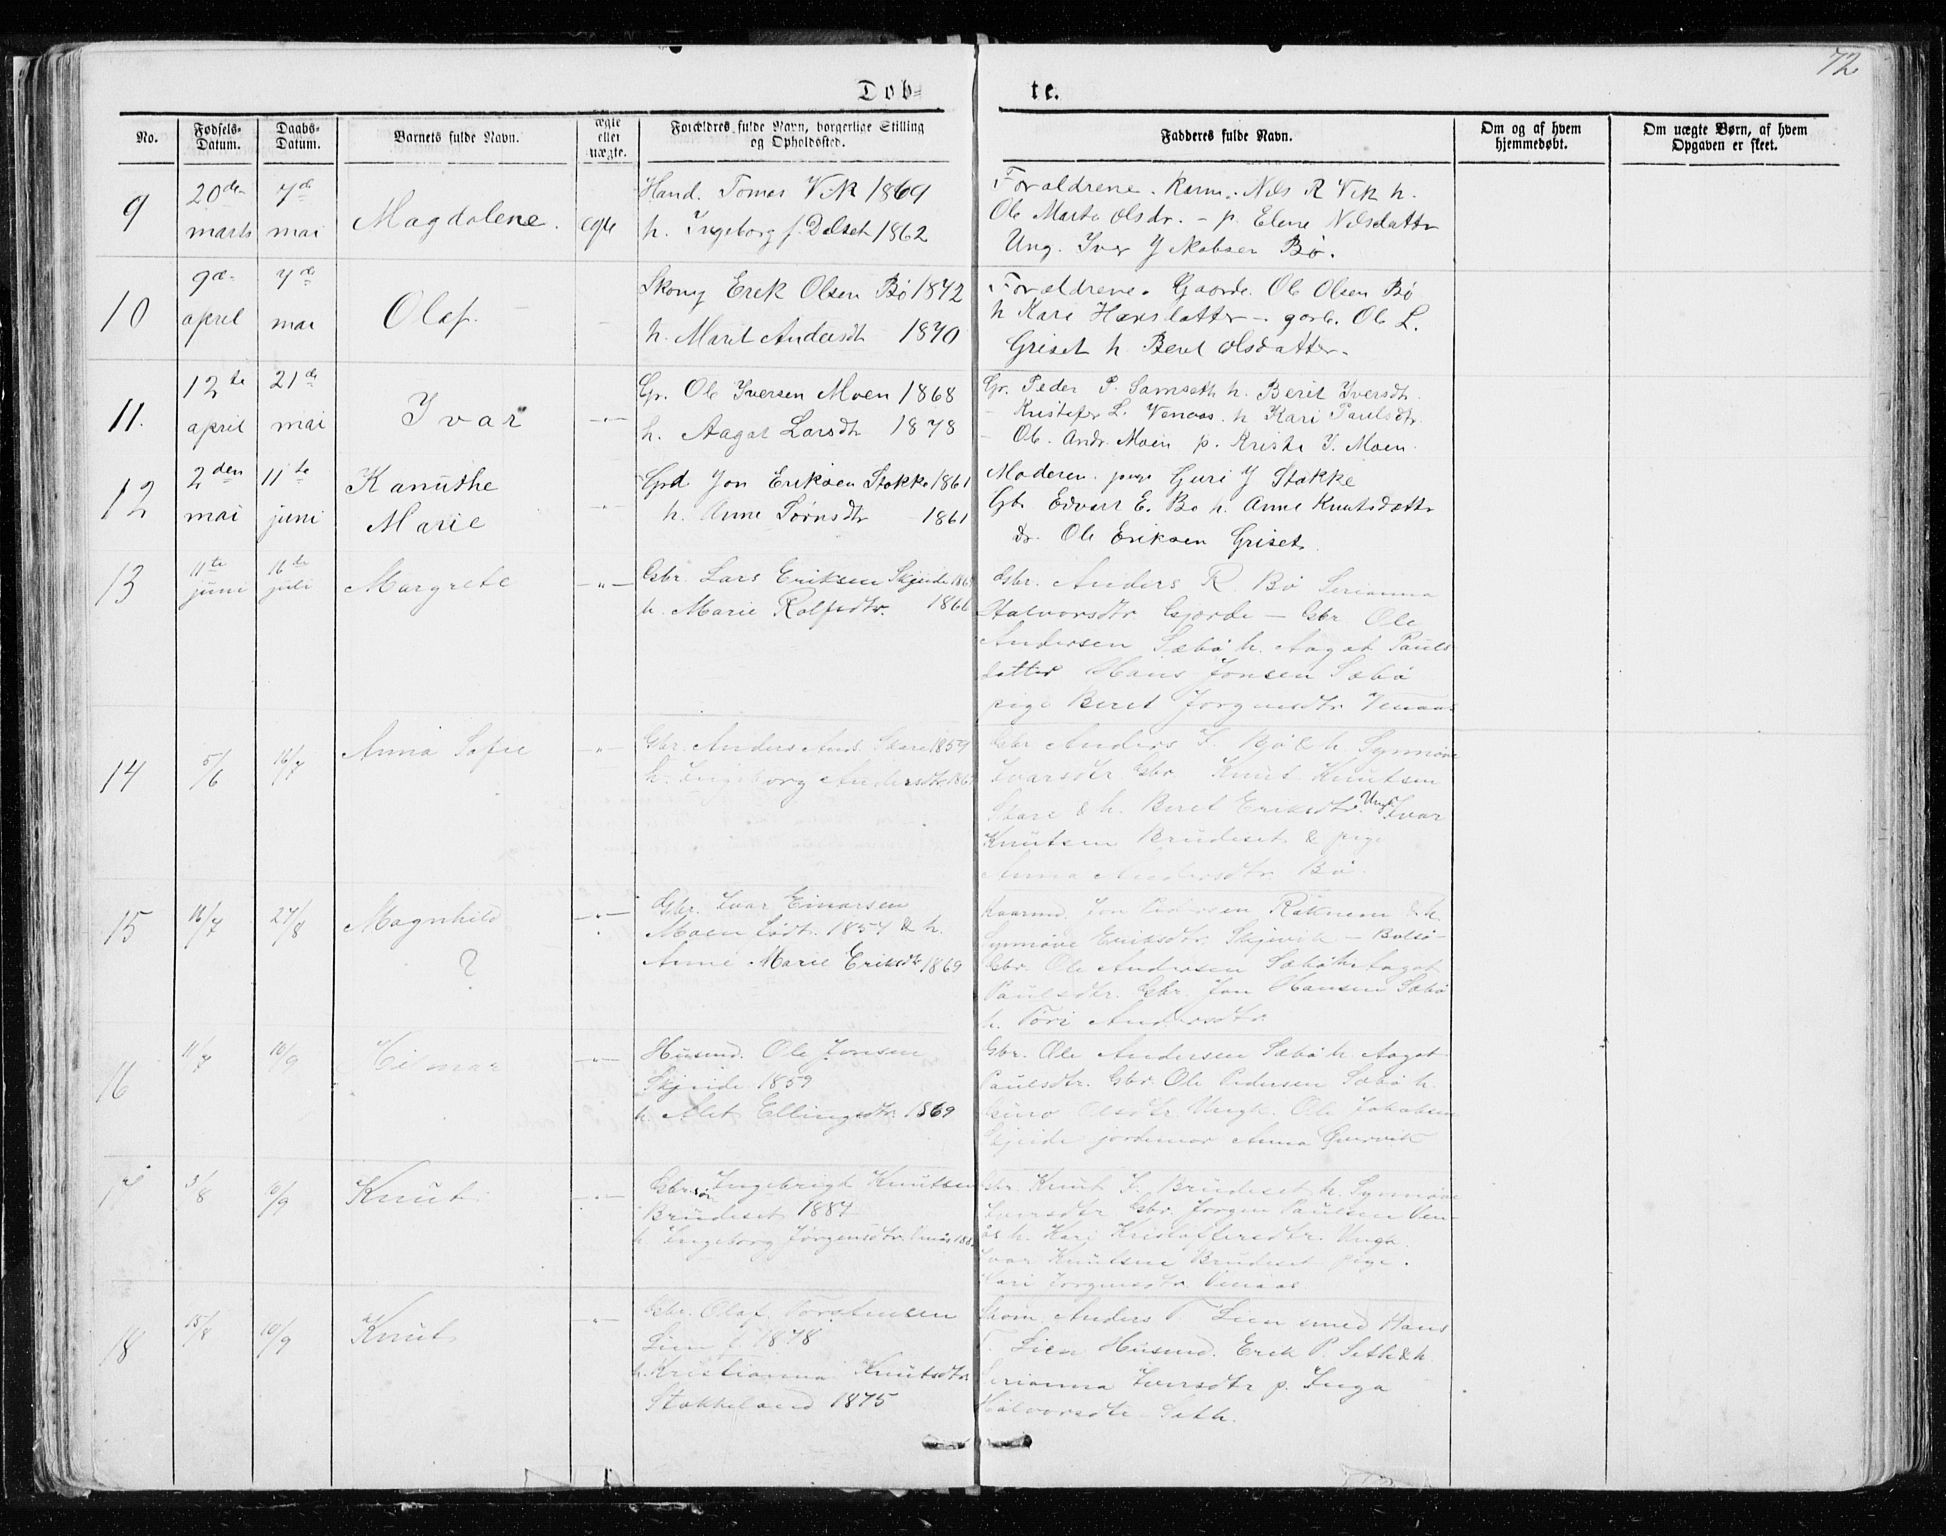 72
Døb= te.
No.
Fødsels-Datum.
Daabs-Datum.
Barnets fulde Navn.
ægte eller uægte.
Forældres fulde Navn, borgerlige Stilling og Opholdssted.
Fadderes fulde Navn.
Om og af hvem hjemmedøbt.
Om uægte Børn, af hvem Opgaven er skeet.
9
20de marts
7de mai
Magdalene.
egte
Hand. Tomas Vik 1869
h. Ingeborg f. Dalset 1862
Foraldrene. Nils R Vik h.
Ole Marta Olsdr. - p. Elene Nilsdatter
Ung. Iver Jakobsen Bø.
10
9de april
7de mai
Olaf.
Erek Olsen Bø 1872
h. Marit Andersdt 1870
Forældrene. Gaarde. Ole Olsen Bø
h Kari Hansdatter - garb. Ole L.
Griset h. Beret Olsdatter.
11.
12te april
21de mai
Ivar
-"-
Gr. Ole Iversen Moen 1868
h. Aagat Larsdt 1878
Gr. Peder P. Samseth h. Berit Iversdt.
- Kristofer L. Venaas. h Kari Paulsdtr
- Ole Andr. Moen p. Krista I. Moen.
12
2den mai
11te juni
Kanuthe
Marie
-"-
Grd Jon Eriksen Stokke 1861
h. Anne Sørnsdt - 1861
Moderen. pige Guri J Stokke
Gb. Edvart E. Bo h. Anne Knutsdatte
dr. Ole Eriksen Griset.
13
11te juni
16de juli
Margrete
-"-
Gbr. Lars Eriksen Skjeide
h. Marie Rolfsdtr. 1866
Gbr. Anders R. Bø Serianna
Halvorsdtr. Gjerde - Gbr. Ole
Andersen Sæbø h. Aagot Pauls
datter Hans Jonsen Sæbø
pige Beret Jørgensdtr. Venaas
14
5/6
16/7
Anna Sofie
-"-
Gbr. Anders And. Skare 1857
h. Ingeborg Andersdtr.
Gbr Anders I. Bø & h. Synnøve
Ivarsdtr. Gbr Knut Knutsen
Skare & h. Beret Eriksdtr. Ungk. Ivar
Knutsen Brudeset & pige
Anna Andersdtr. Bø.
15
16/7
27/8
Magnhild
?
-"-
Gbr. Ivar Einarsen
Moen født 1857 & h.
Anne Marie Eriksdt 1869
Jon Pedersen Røknem & h.
Synnøve Eriksdtr. Skjevik - Bolsø -
Gbr. Ole Andersen Sæbø h. Aagot
Paulsdtr. Gbr. Jon Hansen Sæbø
h. Andersdtr.
16
11/7
10/9
Hilmar
-"-
Husmd. Ole Jonsen
Skjeide 1859
h. Alet Ellingsdtr. 1869
Gbr. Ole Andersen Sæbø h. Aagot
Paulsdtr. Gbr. Ole Pedersen Sæbø h.
Olsdtr. Ungk. Ole Jakobsen
Skjeide jordmor Anna Øvervik
17
3/8
Knut
-"-
Gbr.søn Ingebrigt Knutsen
Brudeset 1887
h. Ingeborg Jørgensdtr.
Gbr. Knut I. Brudeset h. Synnøve
Iversdtr Gbr. Jørgen Paulsen Ven-
ås h. Kari Kristoffersdtr. Ungk.
Ivar Knutsen Brudeset pige.
Kari Jorgensdtr. Venaas
18
15/8
10/9
Knut
-"-
Gbr. Olaf Torstensen
Lien f. 1878
h. Kristianna Knutsdtr
Stokkeland 1875
Anders T. Lien smed Hans
T. Lien Husmd. Erek P. Seth & h.
Serianna Iversdtr p. Inga
Halvorsdtr Seth.